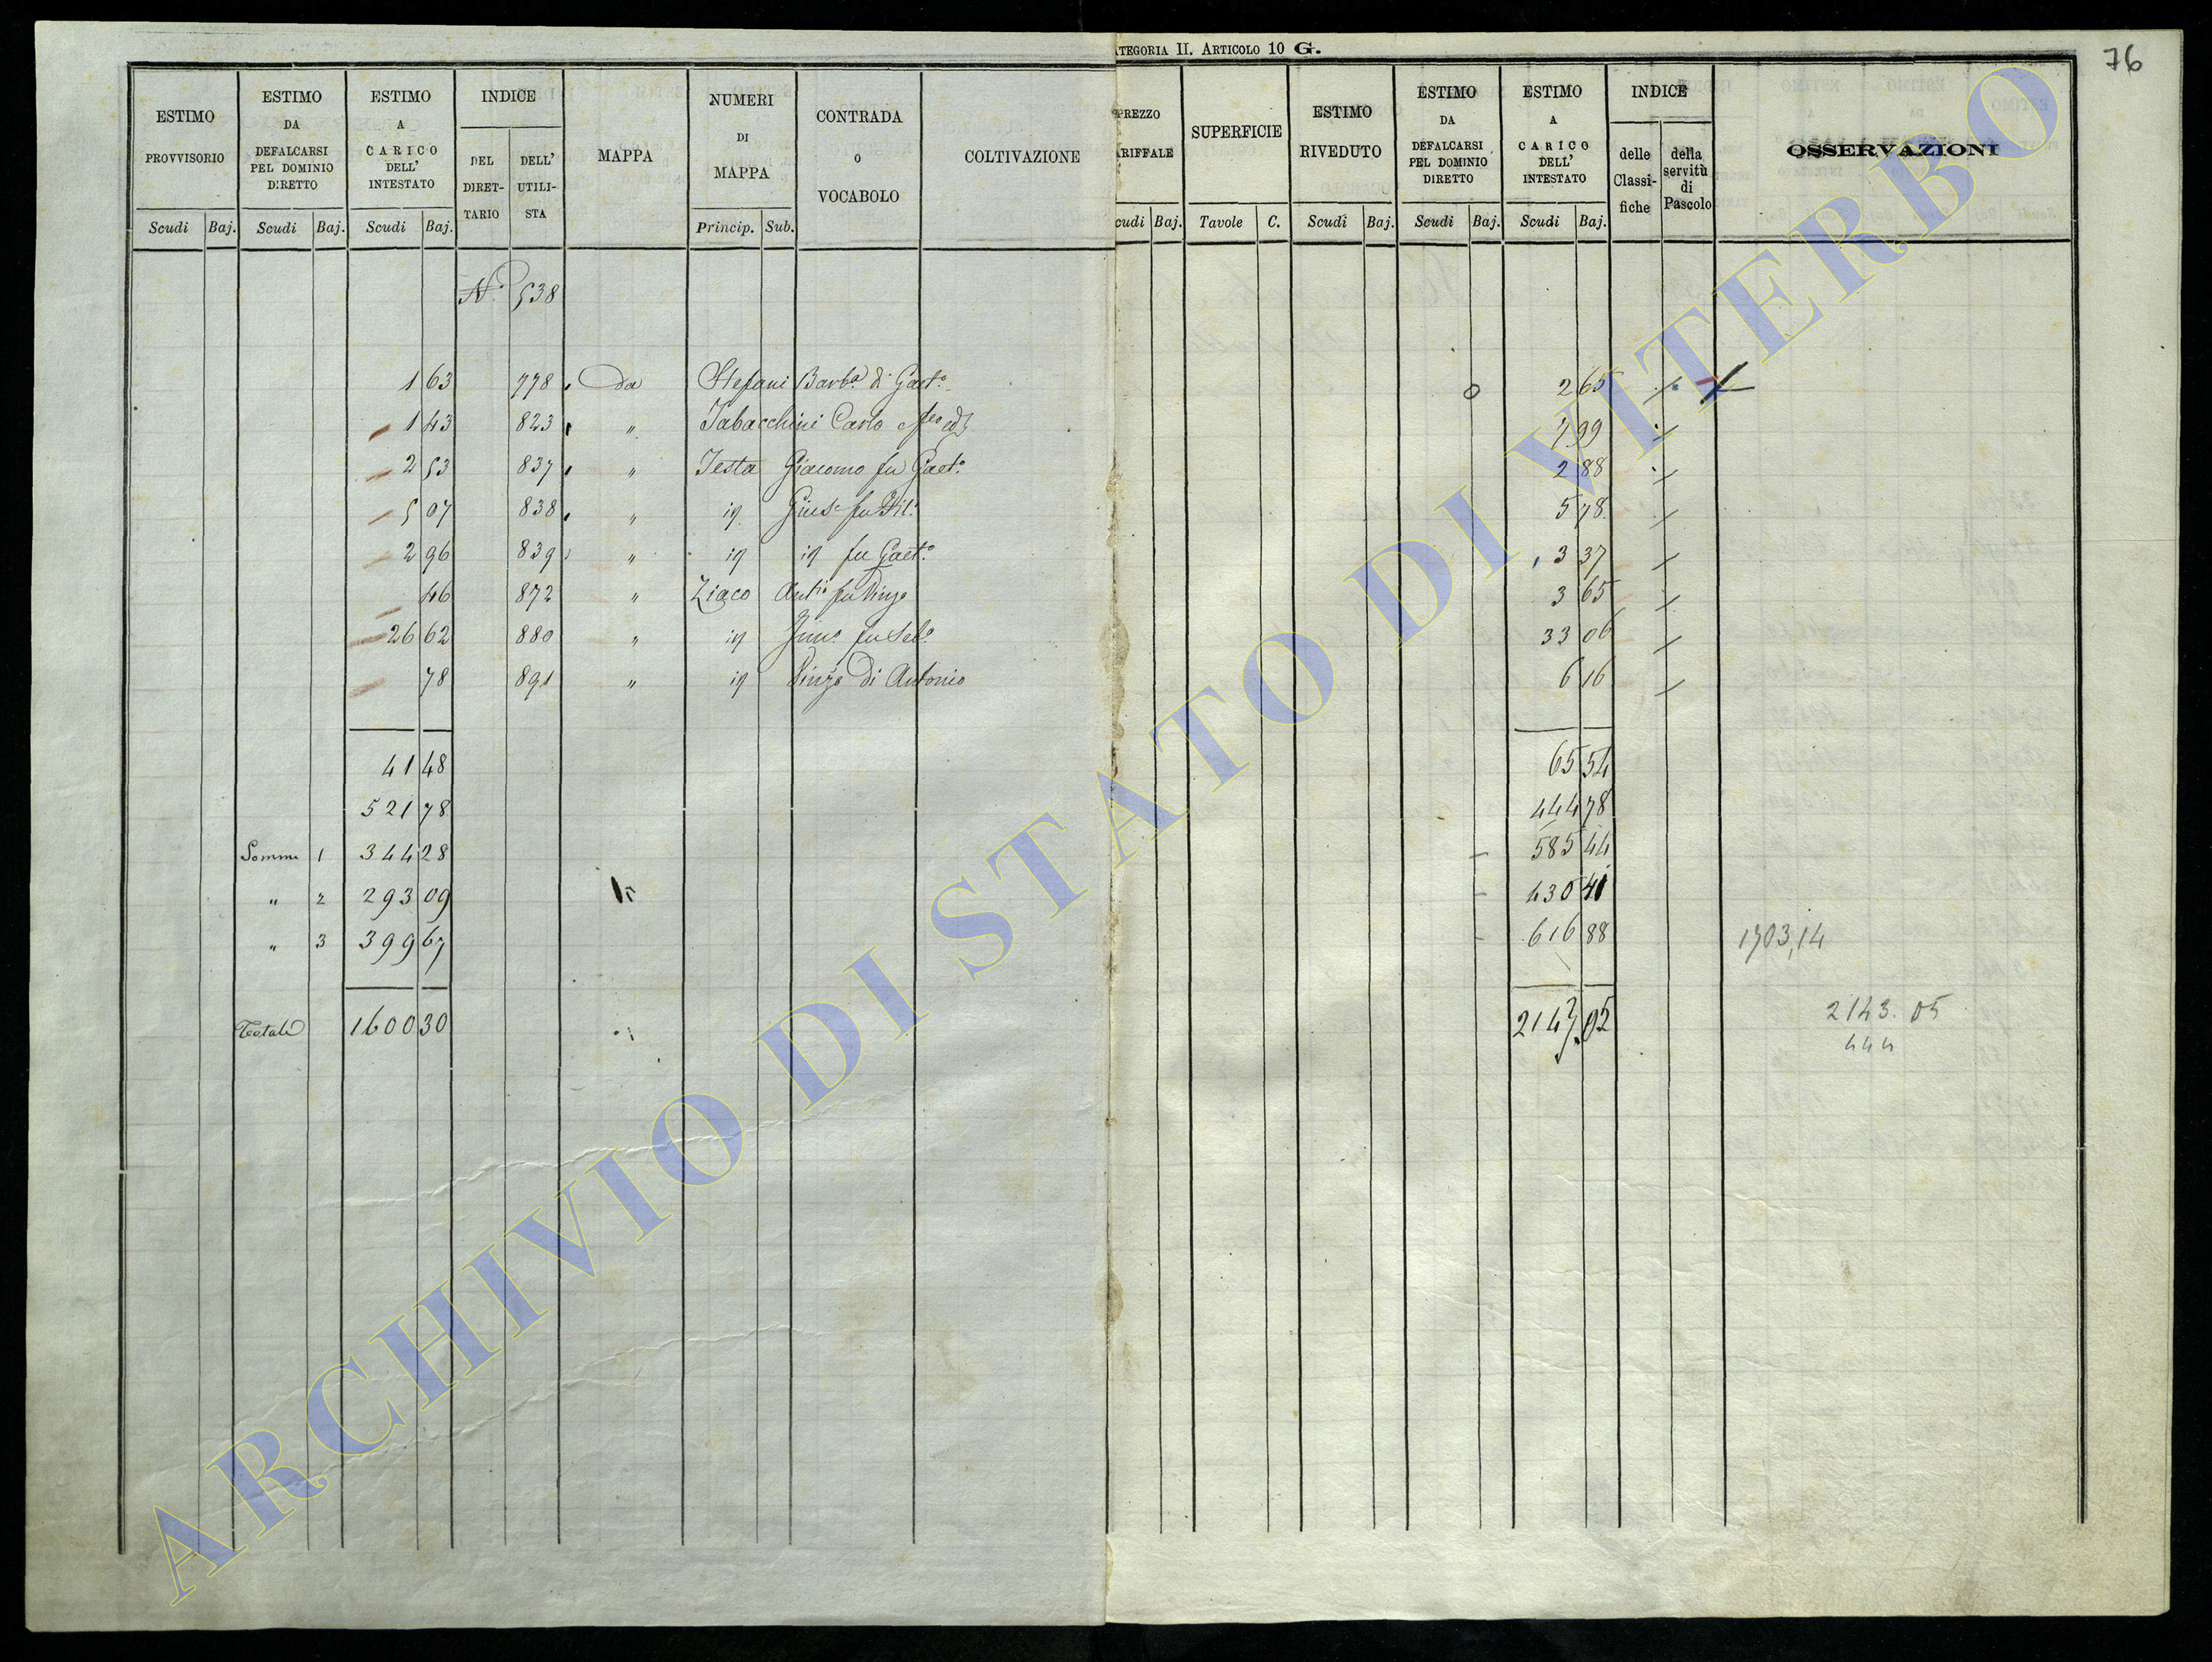 ATEGORIA II. ARTICOLO 10 G.
76
ESTIMO PROVVISORIO
ESTIMO DA DEFALCARSI PEL DOMINIO DIRETTO
ESTIMO A CARICO DELL' INTESTATO
INDICE
DEL DIRET-TARIO
DELL' UTILI-STA
MAPPA
NUMERI DI MAPPA
CONTRADA O VOCABOLO
COLTIVAZIONE
PREZZO
ARIFFALE
SUPERFICIE
ESTIMO RIVEDUTO
ESTIMO DA DEFALCARSI PEL DOMINIO DIRETTO
ESTIMO A CARICO DELL' INTESTATO
INDICE
delle Classi-fiche
della servitù di Pascolo
OSSERVAZIONI
Scudi Baj. Scudi Baj. Scudi Baj. Princip. Sub. cudi Baj. Tavole C. Scudi Baj. Scudi Baj. Scudi Baj.
N.° 538
1 63 778 da Stefani Barb.a di Gaet.o 0 2 65
1 43 823 " Tabacchini Carlo 7 99
2 53 837 " Testa Giacomo fu Gaet.o 2 88
5 07 838 " id Gius.e fu Fil. 5 78
2 96 839 " id id fu Gaet.o 3 37
46 872 " Ziaco Ant.o fu Vinzo 3 65
26 62 880 " id fu 33 06
78 891 " id Vinzo di Antonio 6 16
41 48 65 54
521 78 444 78
Somma 1 344 28 585 44
" 2 293 09 430 41
" 3 399 67 616 88 1703,14
Totale 1600 30 2143 05
2143.05
444
ARCHIVIO DI STATO DI VITERBO